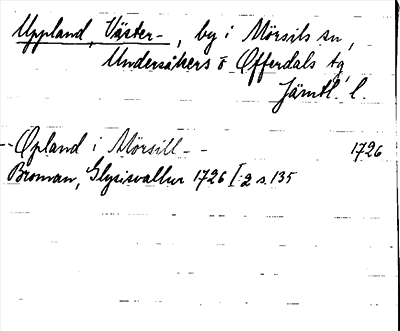 Uppland, Väster- , by i Mörsils sn,
Undersåkers o Offerdals tg,
Jämtl. l.
-- Opland i Mörsill -- 1726
Broman, Glysisvallur 1726 I:2 s. 135